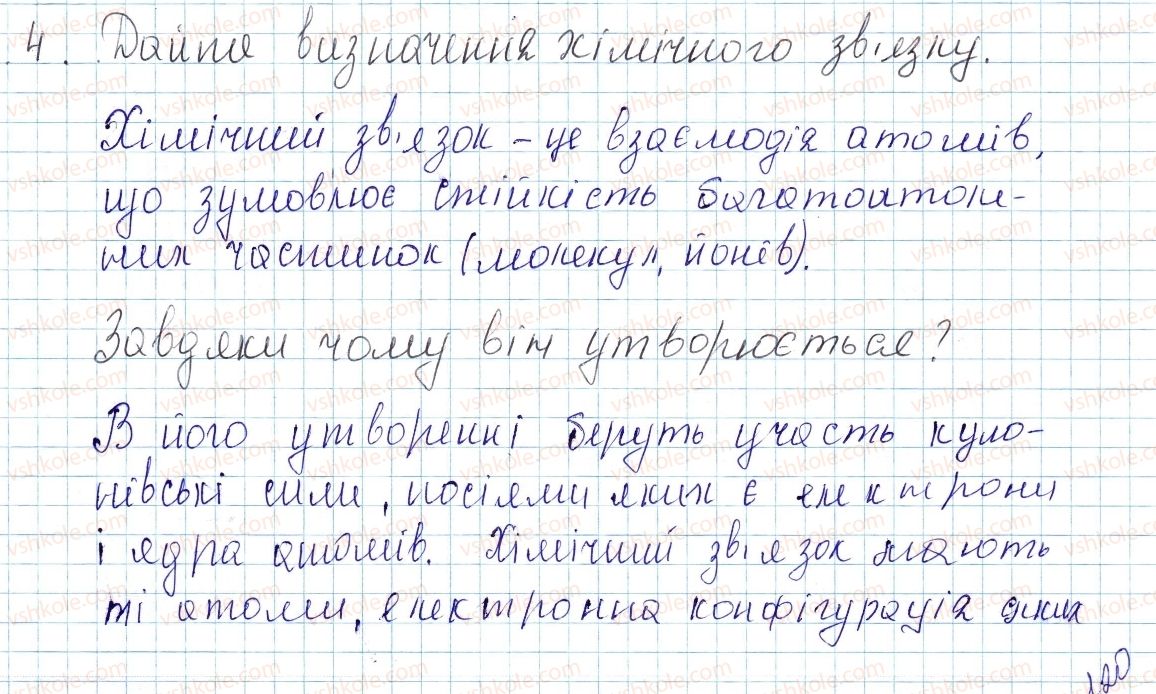 4. Дайте визначення хімічного зв'язку.
Хімічний зв'язок - це взаємодія атомів,
що зумовлює стійкість багатоатом-
них частинок (молекул, йонів).
Завдяки чому він утворюється?
В його утворенні беруть участь куло-
нівські сили, носіями яких є електрони
і ядра атомів. Хімічний зв'язок мають
ті атоми, електронна конфігурація яких
120